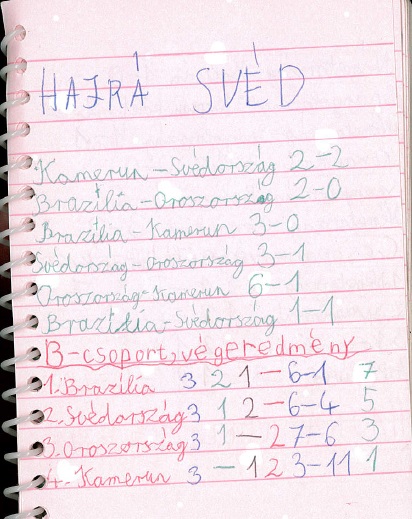 HAJRÁ SVÉD
Kamerun-Svédország 2-2
Brazília-Oroszország 2-0
Brazília-Kamerun 3-0
Svédország-Oroszország 3-1
Oroszország-Kamerun 6-1
Brazília-Svédország 1-1
B-csoport, végeredmény
1. Brazília 3 2 1 - 6-1 7
2. Svédország 3 1 2 - 6-4 5
3. Oroszország 3 1 - 2 7-6 3
4. Kamerun 3 - 1 2 3-11 1